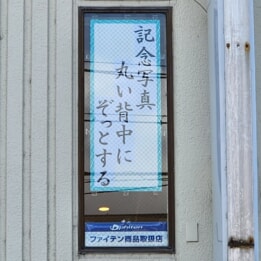 記念写真
丸い背中に
ぞっとする
ファイテン商品取扱店